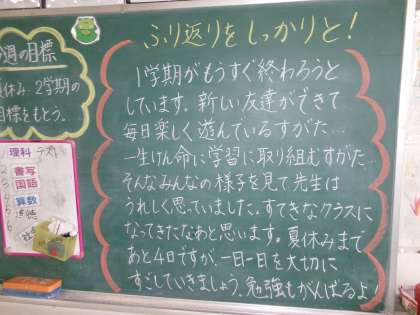 ふり返りをしっかりと!
1学期がもうすぐ終わろうと
しています。新しい友達ができて
毎日楽しく遊んでいるすがた…
一生けん命に学習に取り組むすがた…
そんなみんなの様子を見て先生は
うれしく思っていました。すてきなクラスに
なってきたなあと思います。夏休みまで
あと4日ですが、一日一日を大切に
すごしていきましょう。勉強もがんばるよ!
週の目標
夏休み、2学期の
目標をもとう。
理科 テスト
書写
国語
算数
道徳